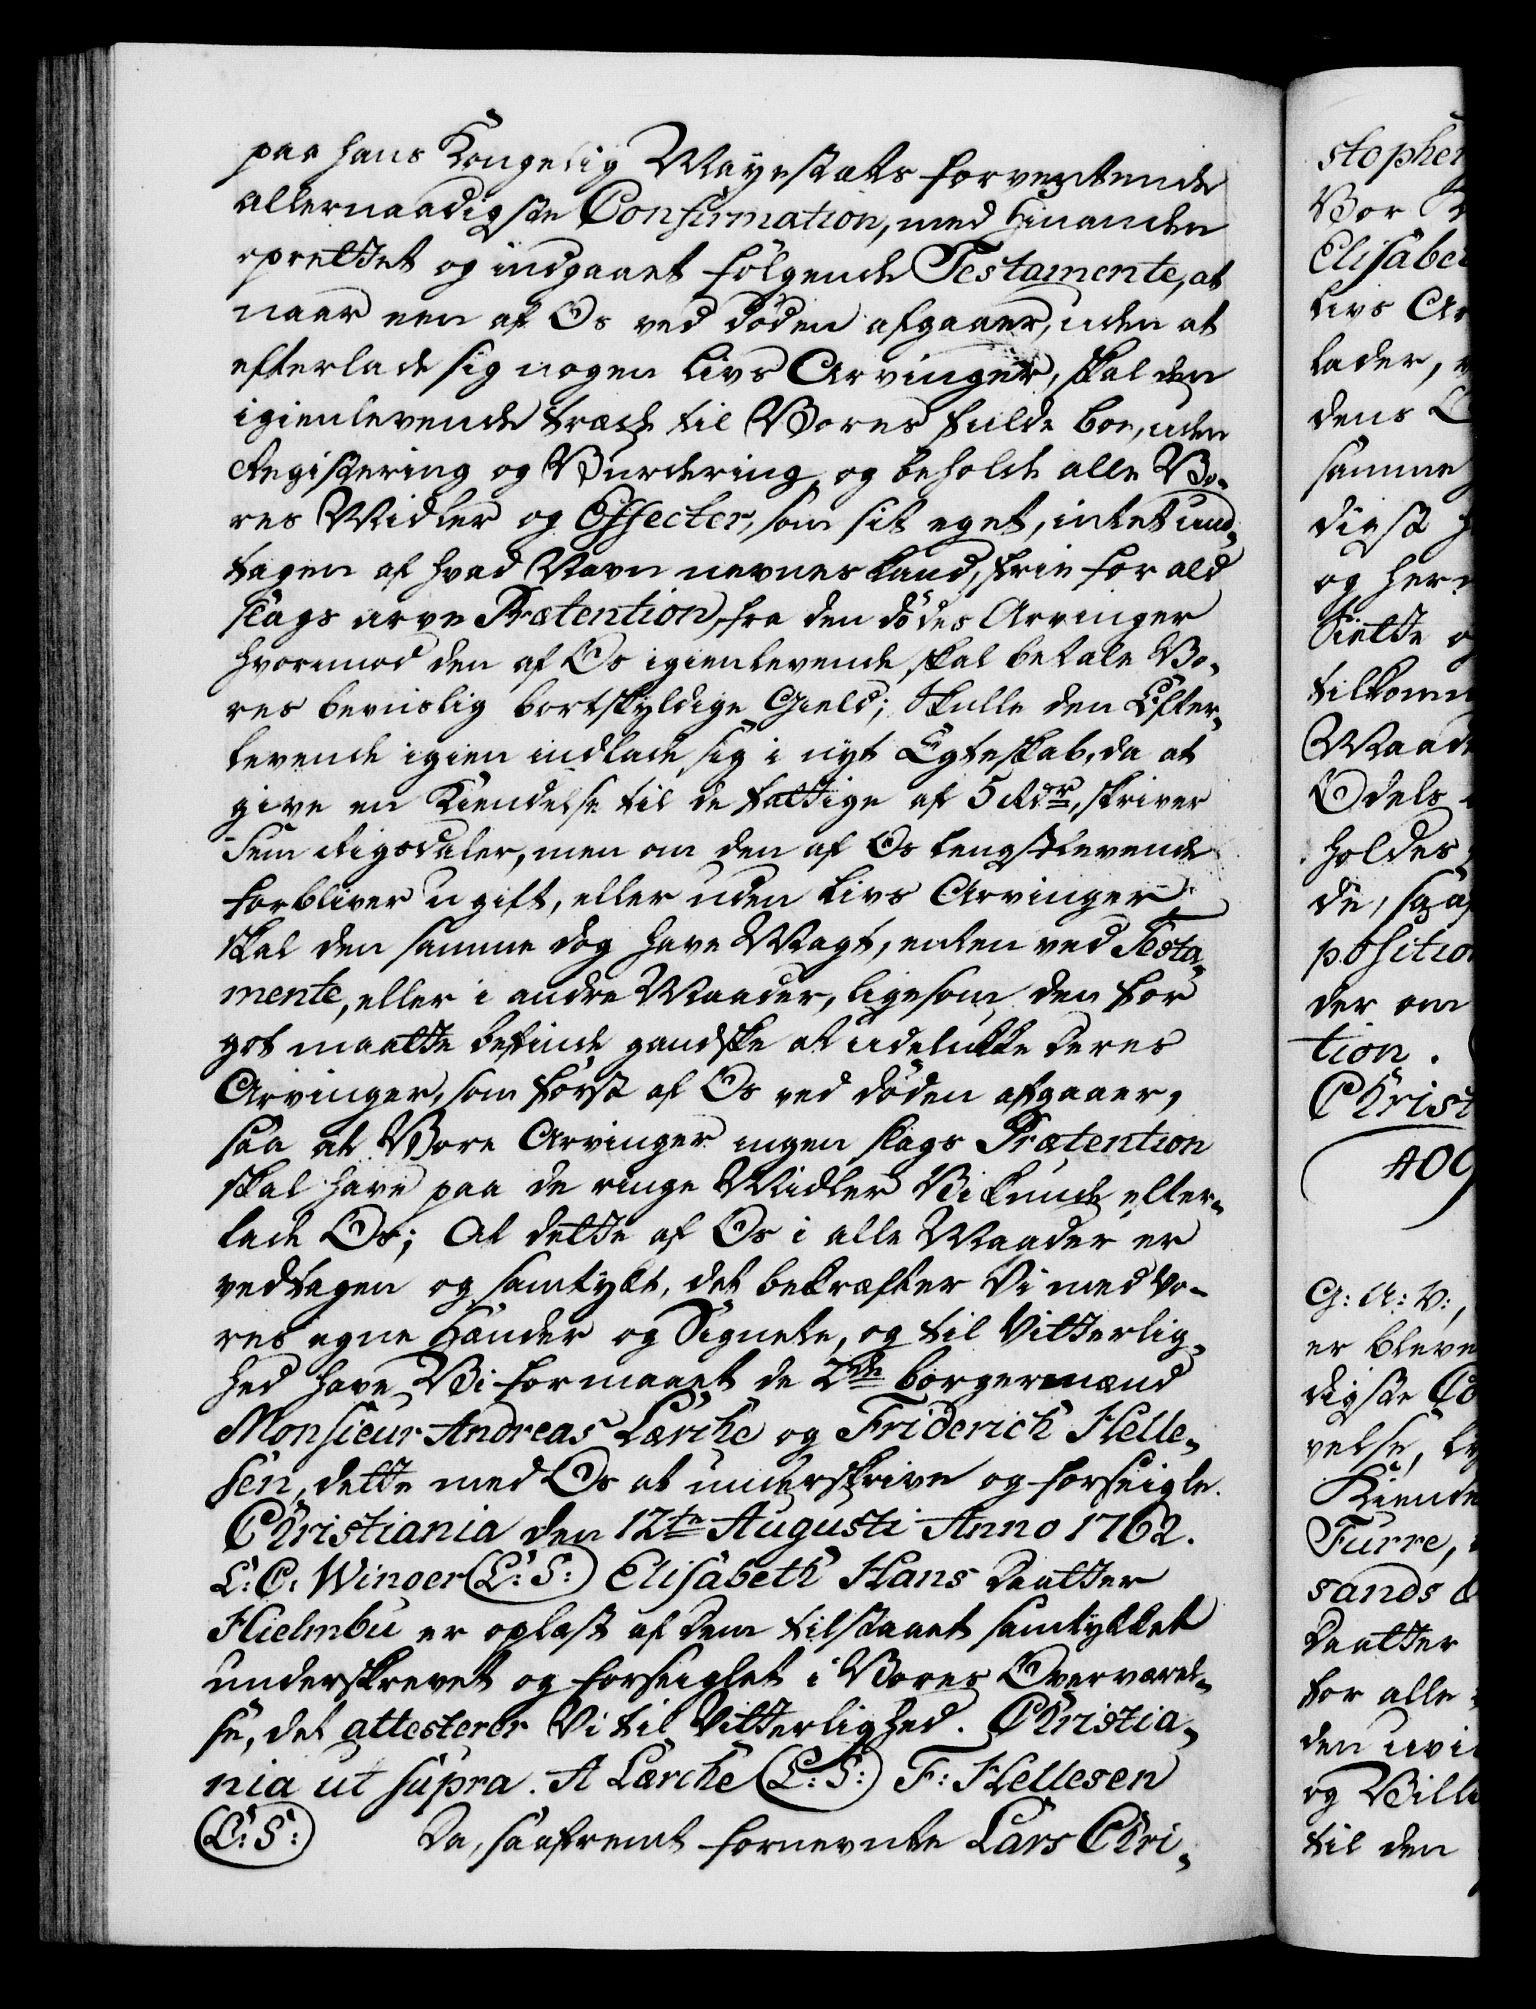 paa hans Kongelig Mayestæts forventende
allernaadigste Confirmation, med hinanden
oprettet og indgaaet følgende Testamente, at
naar een af Os ved døden afgaaer, uden at
efterlade sig nogen Livs Arvinger, skal den
igienlevende træde til Vores fulde boe, uden
Registering og Vurdering, og beholde alle Vo-
res Midler og Effecter, som sit eget, intet und-
tagen af hvad Navn nevnes kand, frie for ald
slags arve Prætention, fra den dødes Arvinger
hvorimod den af Os igienlevende skal betale Vo-
res beviislig bortskyldige Gield; Skulle den Efter-
levende igien indlade sig i nyt Egteskab, da at
give en Kiendelse til de fattige af 5 Rdr, skriver
Fem Rigsdaler, men om den af Os lengstlevende
forbliver ugift, eller uden Livs Arvinger
skal den samme dog have Magt, enten ved Testa-
mente, eller i andre Maader, ligesom den for
got maatte befinde gandske at udelukke deres
Arvinger, som først af Os ved døden afgaaer,
saa at Vore Arvinger ingen slags Prætention
skal have paa de ringe Midler Vi kunde efter-
lade Os; At dette af Os i alle Maader er
vedtagen og samtykt, det bekræfter Vi med Vo-
res egne Hænder og Signete, og til Vitterlig-
hed have Vi formaaet de 2de borgermænd
Monsieur Andreas Lærche og Friderich Helle-
sen, dette med Os at underskrive og forseigle.
Christiania den 12te Augusti Anno 1762.
L: C: Winger (L: S:) Elisabeth Hans Daatter
Hielmbu er oplæst af dem tilstaaet samtykket
underskrevet og forseiglet i Vores Overværel-
se, det attesterer Vi til Vitterlighed. Christia-
nia ut supra. A Lærche (L: S:) F: Hellesen
(L: S: Da, saafremt fornevnte Lars Chri-
stophe
Vor
Elisabe
Livs Ar
lader,
dens
samme
digst
og her
Sielle
tilkomm
Maad
Odels
holdes
de, saa
positio
der om
tion.
Christ
409
G: A: V:,
er bleve
digste Co
velse,
Kiende
Furre,
sands
Daatter
for alle
den uvi
og Ville
til den